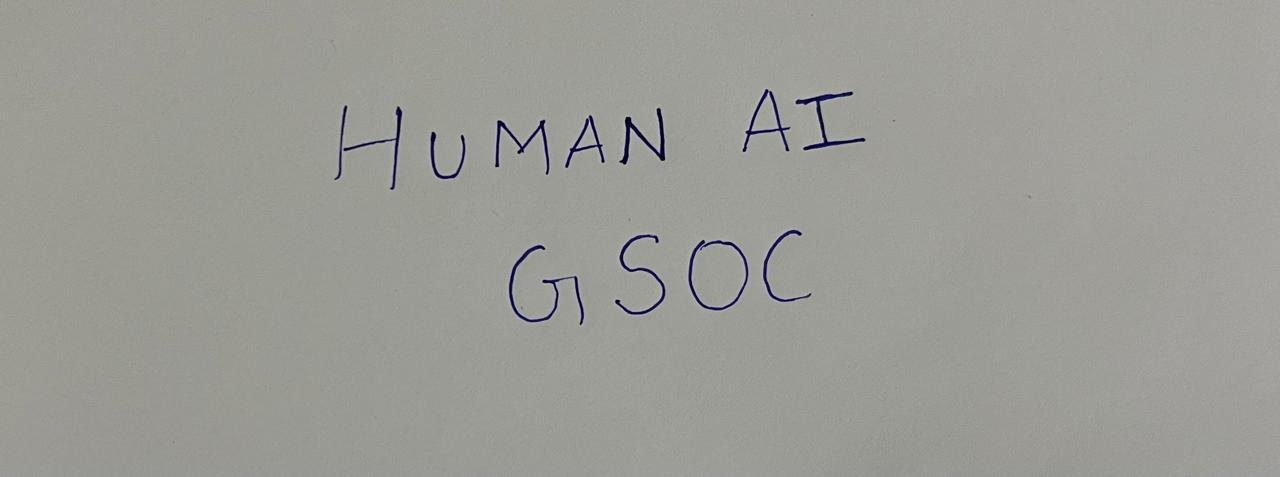 HUMAN AI
GSOC